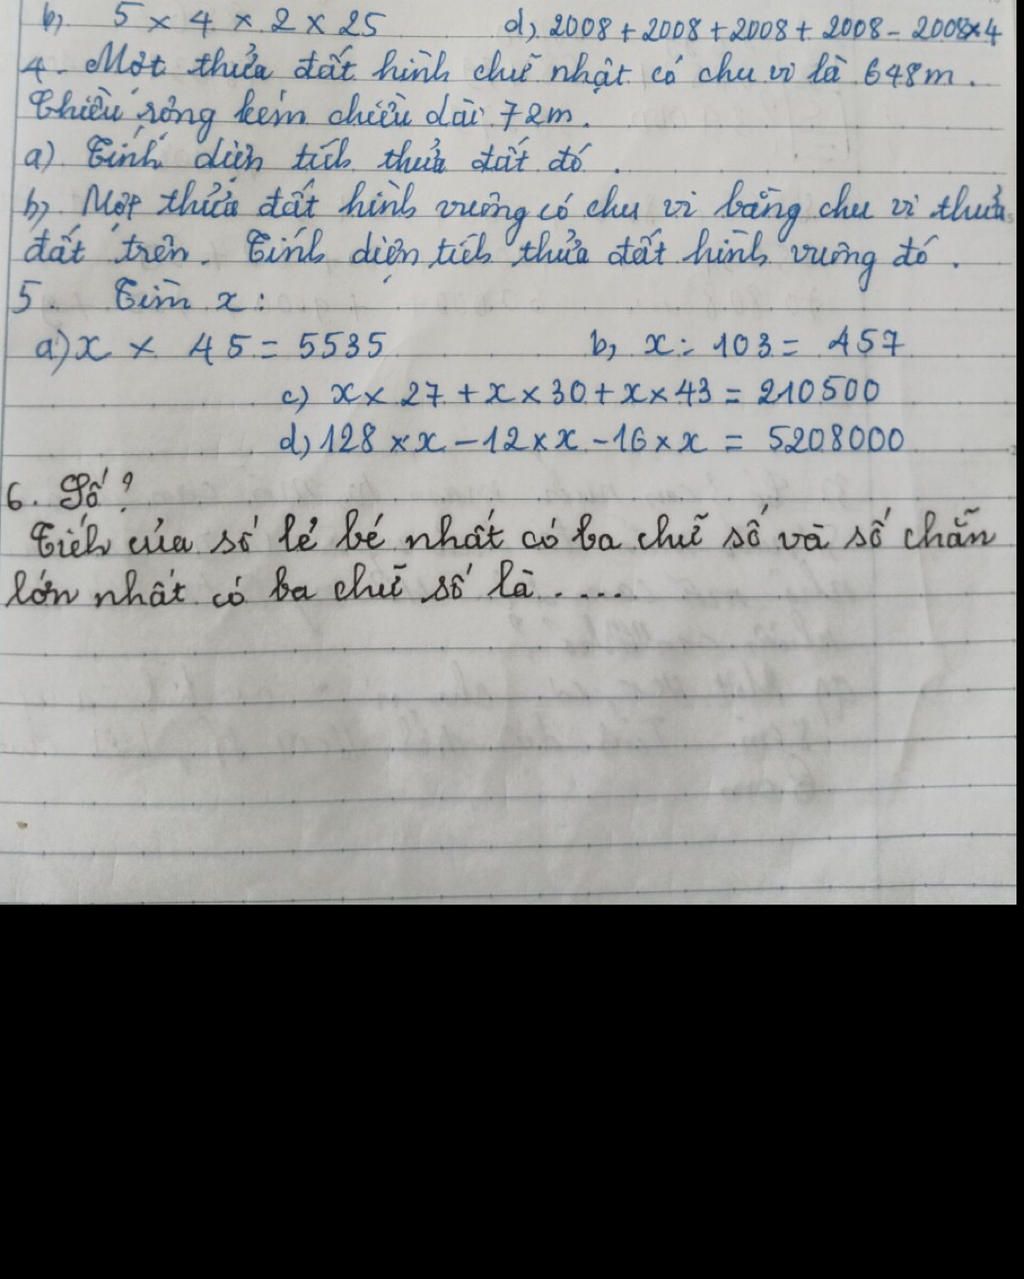 b, 5 × 4 × 2 × 25 d, 2008 + 2008 + 2008 + 2008 - 2008×4
4. Một thửa đất hình chữ nhật có chu vi là 648m.
Chiều rộng kém chiều dài 72m.
a) Tính diện tích thửa đất đó.
b, Một thửa đất hình vuông có chu vi bằng chu vi thửa
đất trên. Tính diện tích thửa đất hình vuông đó.
5. Tìm x:
a) x × 45 = 5535 b, x : 103 = 457
c) x × 27 + x × 30 + x × 43 = 210500
d, 128 × x - 12 × x - 16 × x = 5208000
6. Số?
Tích của số lẻ bé nhất có ba chữ số và số chẵn
lớn nhất có ba chữ số là ....